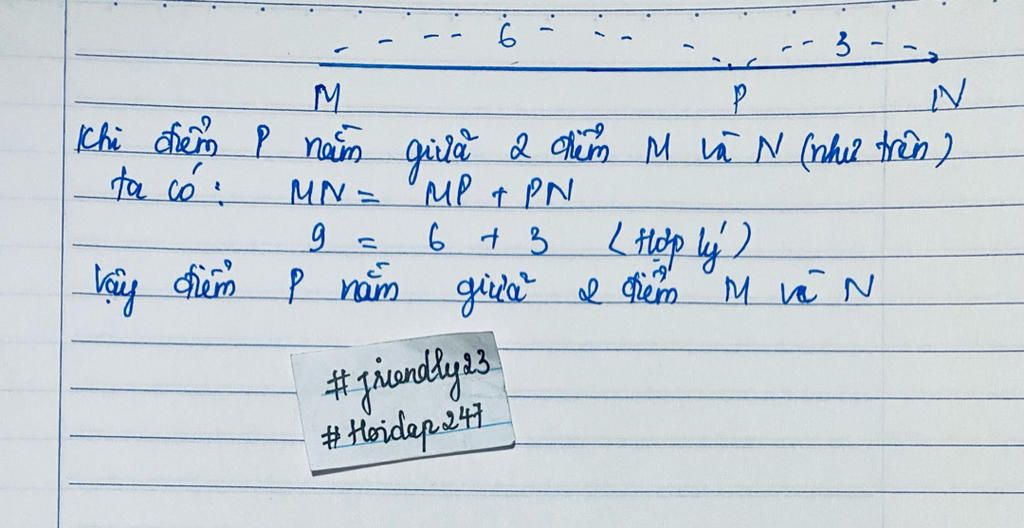 6 3
M P N
Khi điểm P nằm giữa 2 điểm M và N (như trên)
ta có: MN = MP + PN
9 = 6 + 3 (Hợp lý)
Vậy điểm P nằm giữa 2 điểm M và N
#friendly23
#Hoidap247